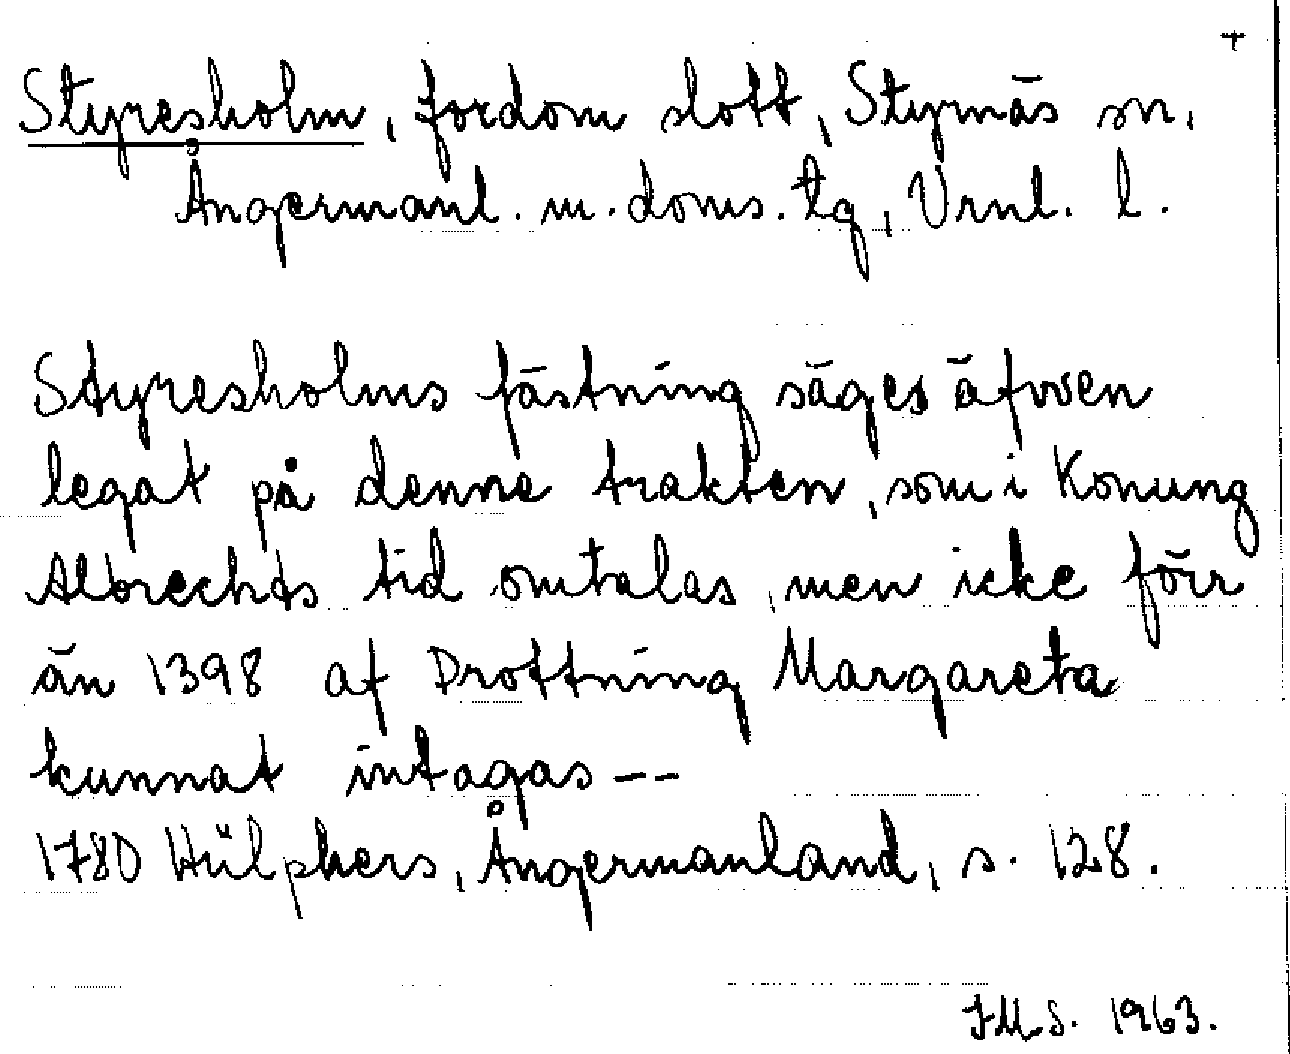 +
Styresholm, fordom slott, Styrnäs sn.
Ångermanl. m. doms. tg, Vrnl. l.
Styresholms fästning säges äfwen
legat på denne trakten, som i Konung
Albrechts tid omtalas, men icke förr
än 1398 af Drottning Margareta
kunnat intagas --
1780 Hülphers, Ångermanland, s. 128.
JMS. 1963.